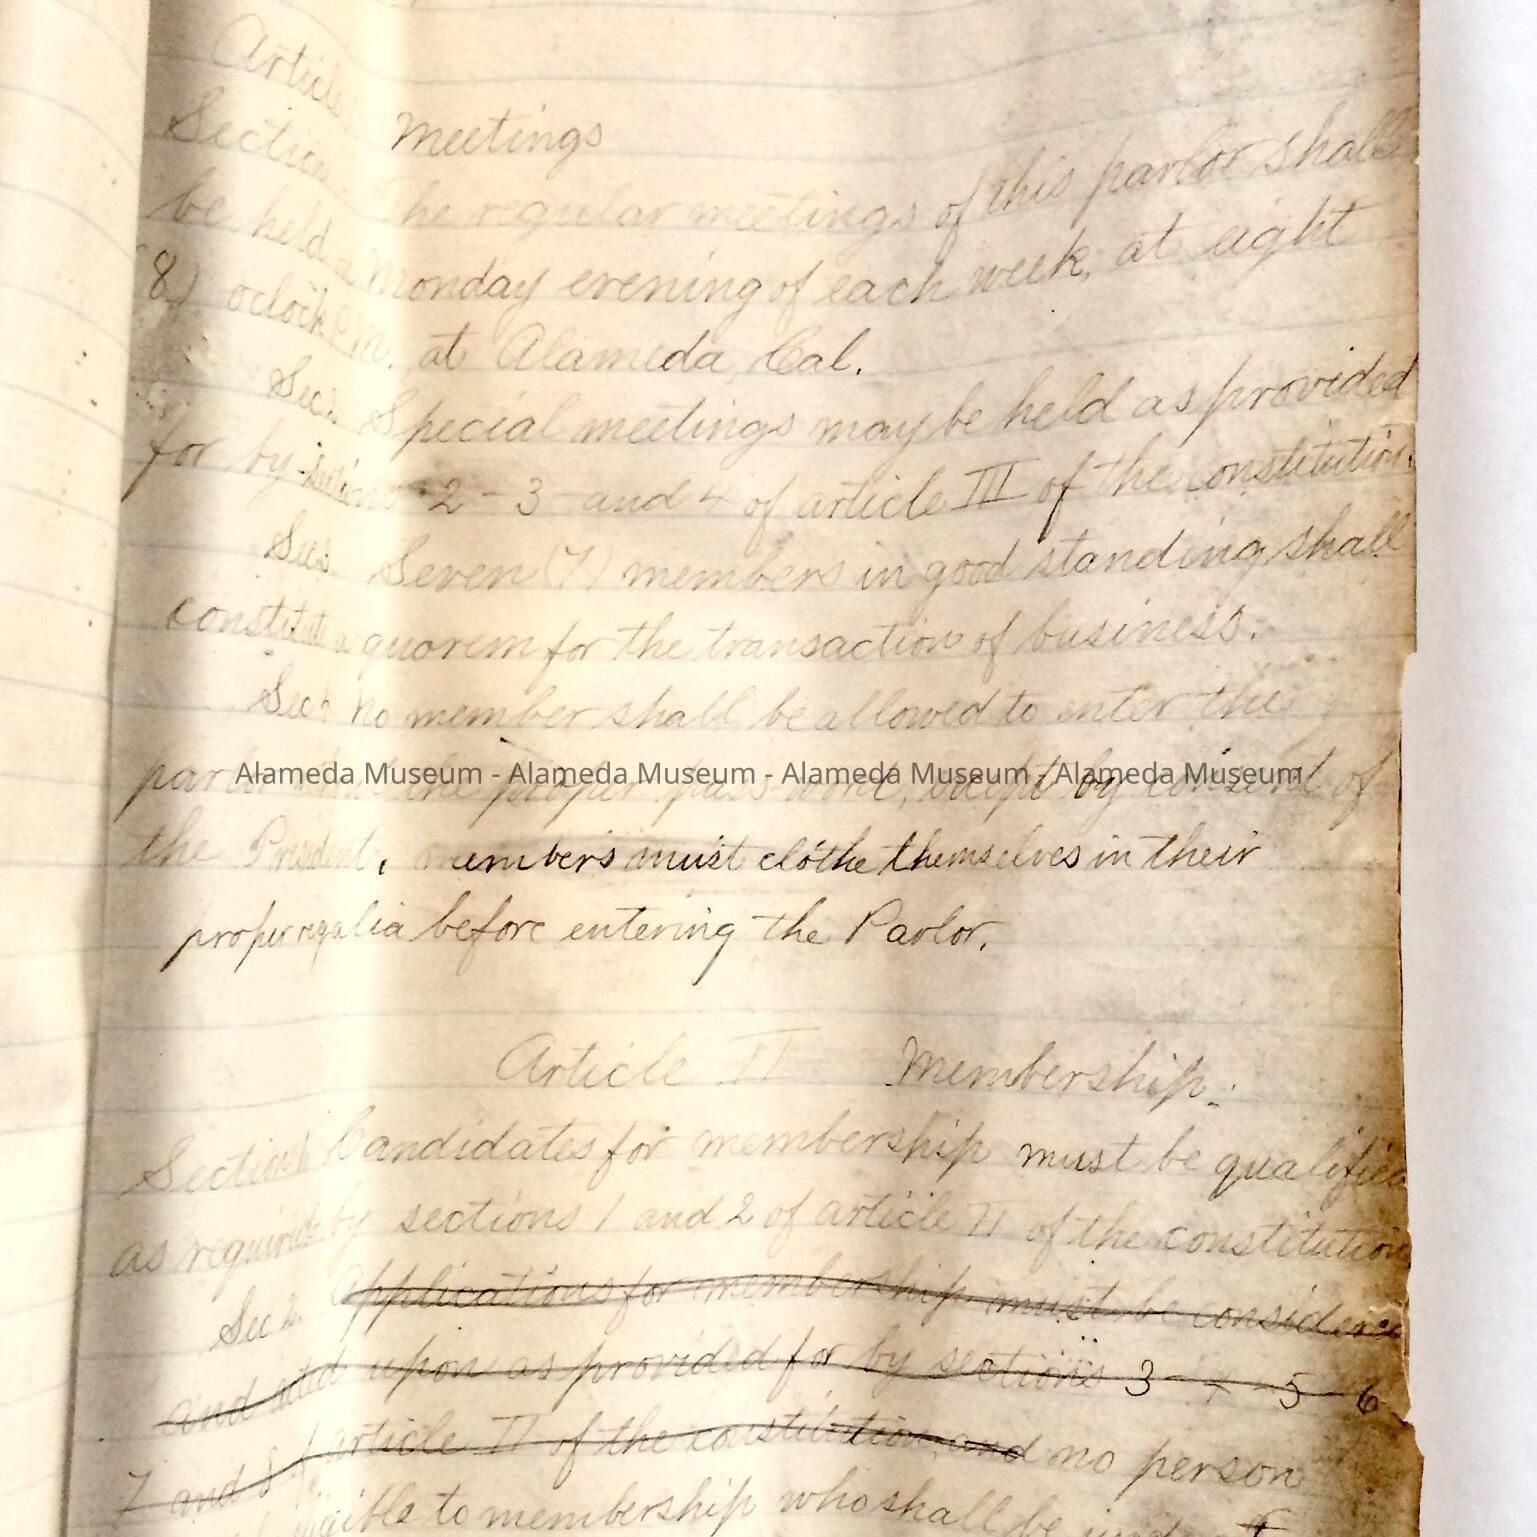 Article
Meetings
Section The regular meetings of this parlor shall
be held Monday evening of each week, at eight
(8) oclock P.M. at Alameda, Cal.
Sec 2. Special meetings may be held as provided
for by sections 2 - 3 - and 4 of article III of the constitution.
Sec 3. Seven (7) members in good standing shall
constitute a quorem for the transaction of business.
Sec 4 No member shall be allowed to enter the
parlor the proper pass word, except by consent of
Alameda Museum - Alameda Museum - Alameda Museum - Alameda Museum
the President, members must clothe themselves in their
proper regalia before entering the Parlor.
Article II Membership.
Section 1 Candidates for membership must be qualified
as required by sections 1 and 2 of article II of the constitution
Sec 2. Applications for membership must be considered
and acted upon as provided for by sections 3 - 4 - 5 - 6
7 and 8 of article II of the constitution and no person
eligible to membership who shall be